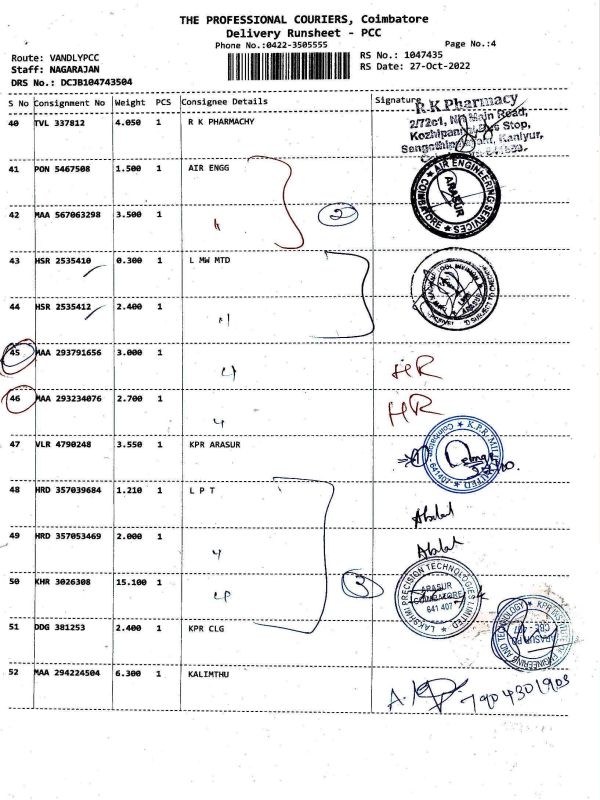 THE PROFESSIONAL COURIERS, Coimbatore
Delivery Runsheet - PCC
Phone No.:0422-3505555
Page No.:4
Route: VANDLYPCC
Staff: NAGARAJAN
DRS No.: DCJB104743504
RS No.: 1047435
RS Date: 27-Oct-2022
S No Consignment No Weight PCS Consignee Details Signature
40 TVL 337812 4.050 1 R K PHARMACHY
R.K Pharmacy
2/72c1, Main Road,
Stop,
Kaniyur,
41 PON 5467508 1.500 1 AIR ENGG
AIR ENGINEERING SERVICES
COIMBATORE
ARASUR
42 MAA 567063298 3.500 1 "
2
43 HSR 2535410 0.300 1 L MW MTD
44 HSR 2535412 2.400 1 "
45 MAA 293791656 3.000 1 "
HR
46 MAA 293234076 2.700 1 "
HR
47 VLR 4790248 3.550 1 KPR ARASUR
K.P.R. MILL LIMITED
Coimbatore - 641407
48 HRD 357039684 1.210 1 L P T
49 HRD 357053469 2.000 1 "
50 KHR 3026308 15.100 1 LP
3
LAKSHMI PRECISION TECHNOLOGIES LIMITED
ARASUR
COIMBATORE
641 407
51 DDG 381253 2.400 1 KPR CLG
KPR INSTITUTE OF ENGINEERING AND TECHNOLOGY
ARASUR PO
52 MAA 294224504 6.300 1 KALIMTHU
7904301903